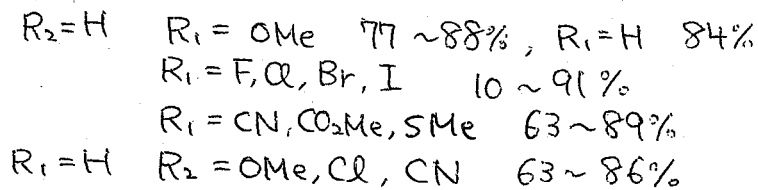 R₂=H R₁ = OMe 77 ~88%, R₁=H 84%
R₁ = F, Cl, Br, I 10 ~ 91 %
R₁ = CN, CO₂Me, SMe 63~89%
R₁=H R₂ = OMe, Cl, CN 63~ 86%